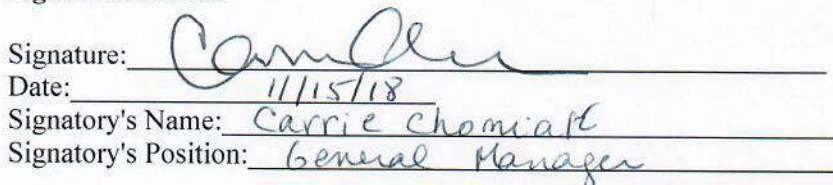 Signature:
Date: 11/15/18
Signatory's Name: Carrie Chomiak
Signatory's Position: General Manager